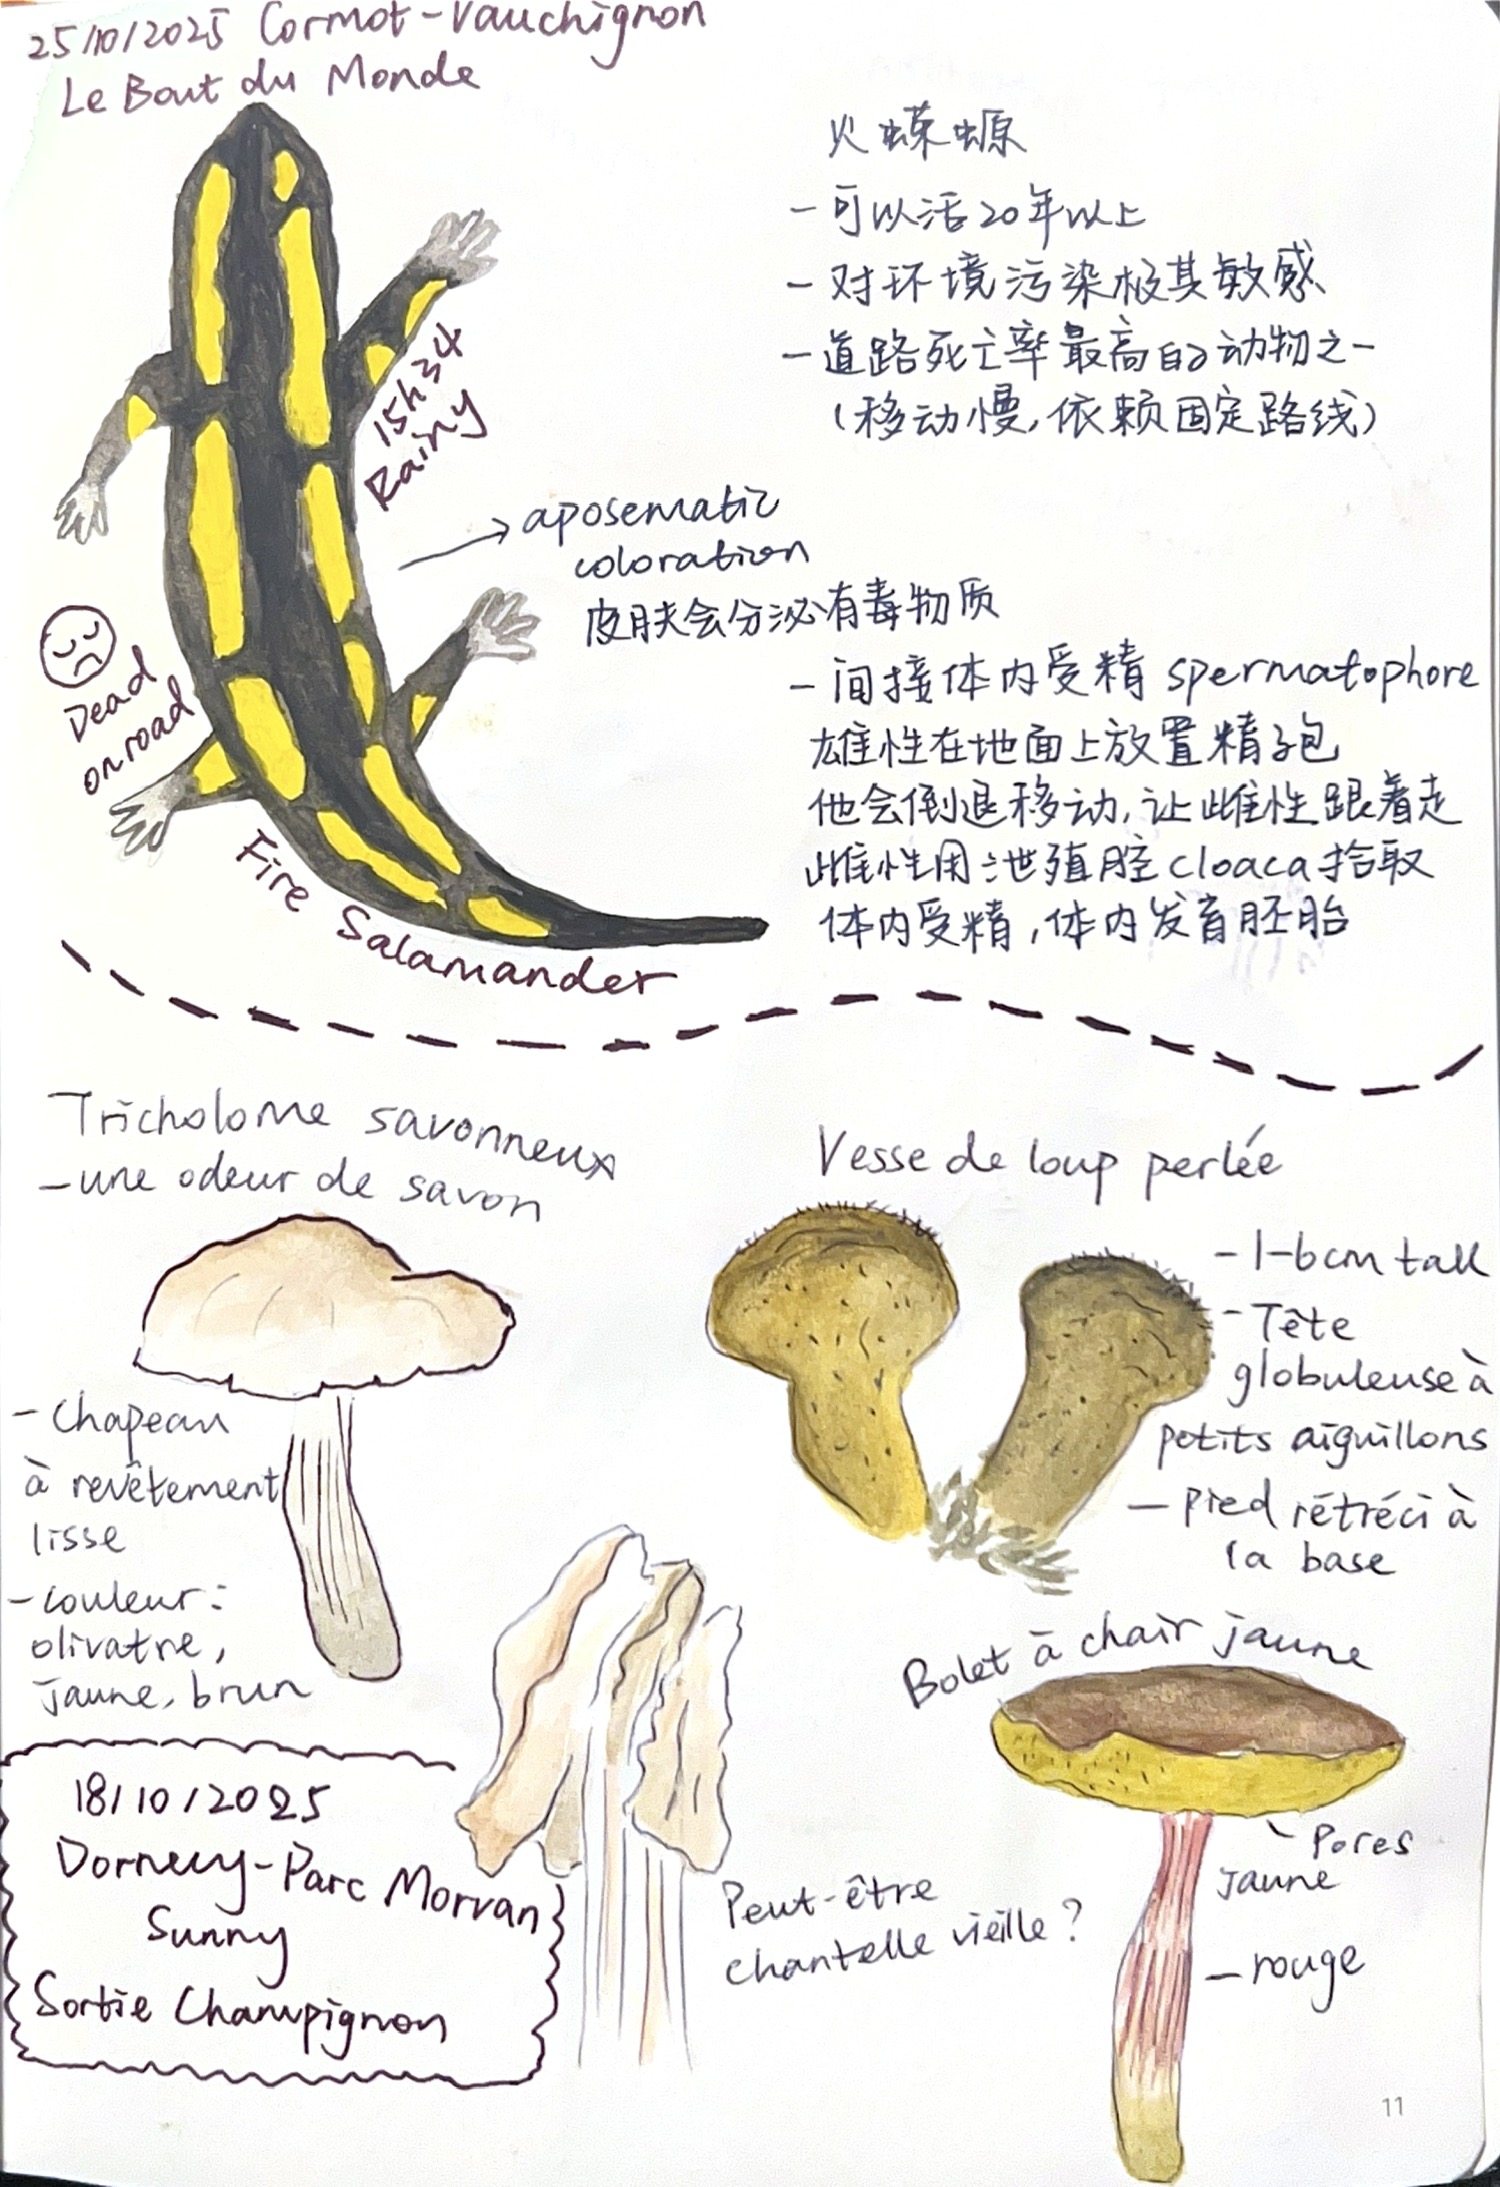 25/10/2025 Cormot-Vauchignon
Le Bout du Monde
火蝾螈
- 可以活20年以上
- 对环境污染极其敏感
- 道路死亡率最高的动物之一
(移动慢,依赖固定路线)
15h34
Rainy
→ aposematic
coloration
皮肤会分泌有毒物质
Dead
on road
- 间接体内受精 spermatophore
雄性在地面上放置精子包
他会倒退移动,让雌性跟着走
雌性用泄殖腔cloaca拾取
体内受精,体内发育胚胎
Fire Salamander
Tricholome savonneux
- une odeur de savon
- Chapeau
à revêtement
lisse
- couleur:
olivatre,
jaune, brun
Vesse de loup perlée
- 1-6cm tall
- Tête
globuleuse à
petits aiguillons
- pied rétréci à
la base
Bolet à chair jaune
- Pores
jaune
- rouge
Peut-être
chantelle vieille?
18/10/2025
Dornecy-Parc Morvan
Sunny
Sortie Champignon
11